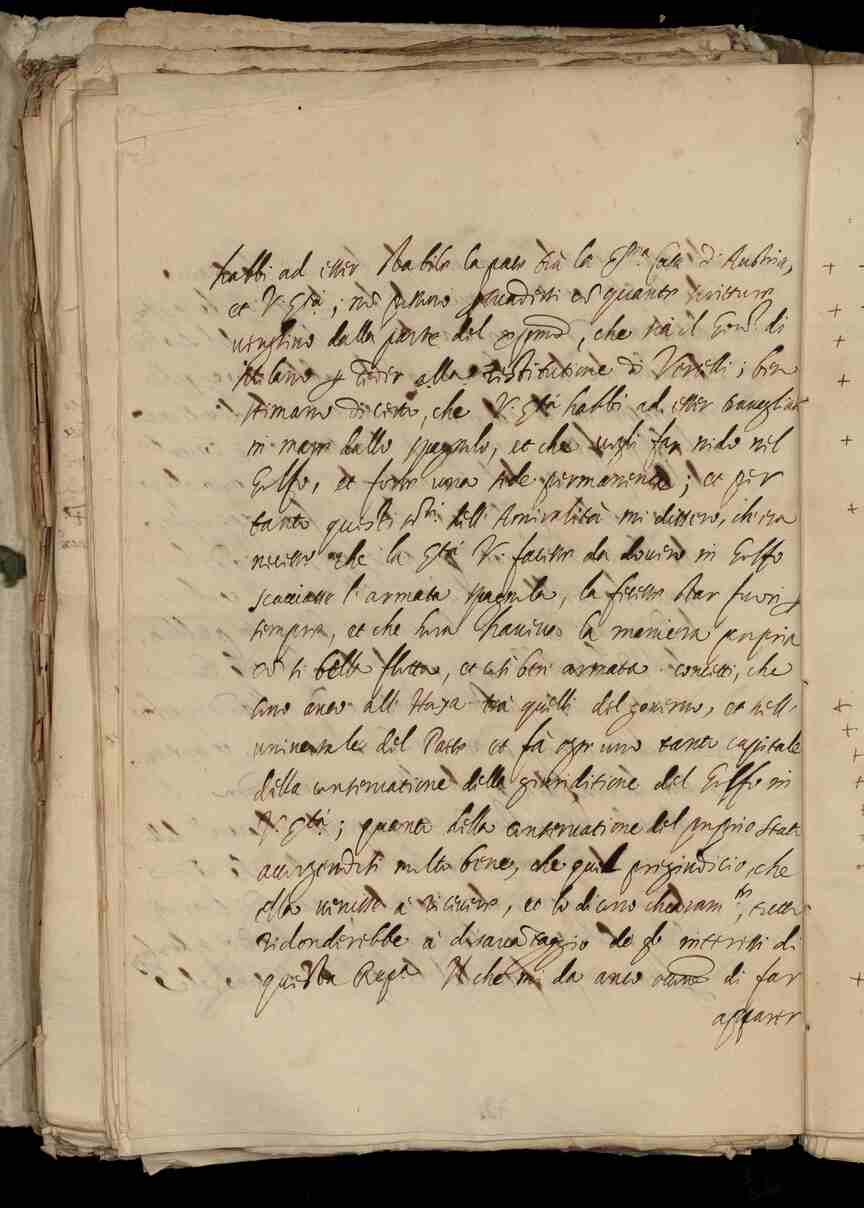 habbi ad esser stabile la pace trà la Ser.ma Casa d'Austria,
et V. S.tà; nè possono persuadersi cõ quante scritture
venghino dalla parte del, che sia il Gov.r di
Milano p ceder alla restitutione di Vercelli; ben
stimano di certo, che V. S.tà habbi ad esser travegliata
in mare dallo spagnolo, et che vogli far nido nel
Golfo, et forse una sede permanente; et per
tanto questi SS.ri dell'Amiralità mi dissero, ch'era
necess.o che la S.tà V. facesse da dovero in Golfo
scacciasse l'armata spagnola, la facesse star fuori p
sempre, et che hora haveva la maniera propria
cõ sì bella flotta, et così ben armata. concetti, che
sono anco all'Haya trà quelli del governo, et nell'
universale del Paese et fà ogn'uno tanto capitale
della conservatione della giuriditione del Golfo in
V. S.tà; quanto della conservatione del proprio stato
accorgendosi molto bene, che quel pregiudicio, che
ella venisse à ricevere, et lo dicono chiaram.te, tutto
ridonderebbe à disavãtaggio de gl'interessi di
questa Rep.ca Il che mi da anco occ.ne di far
apparer